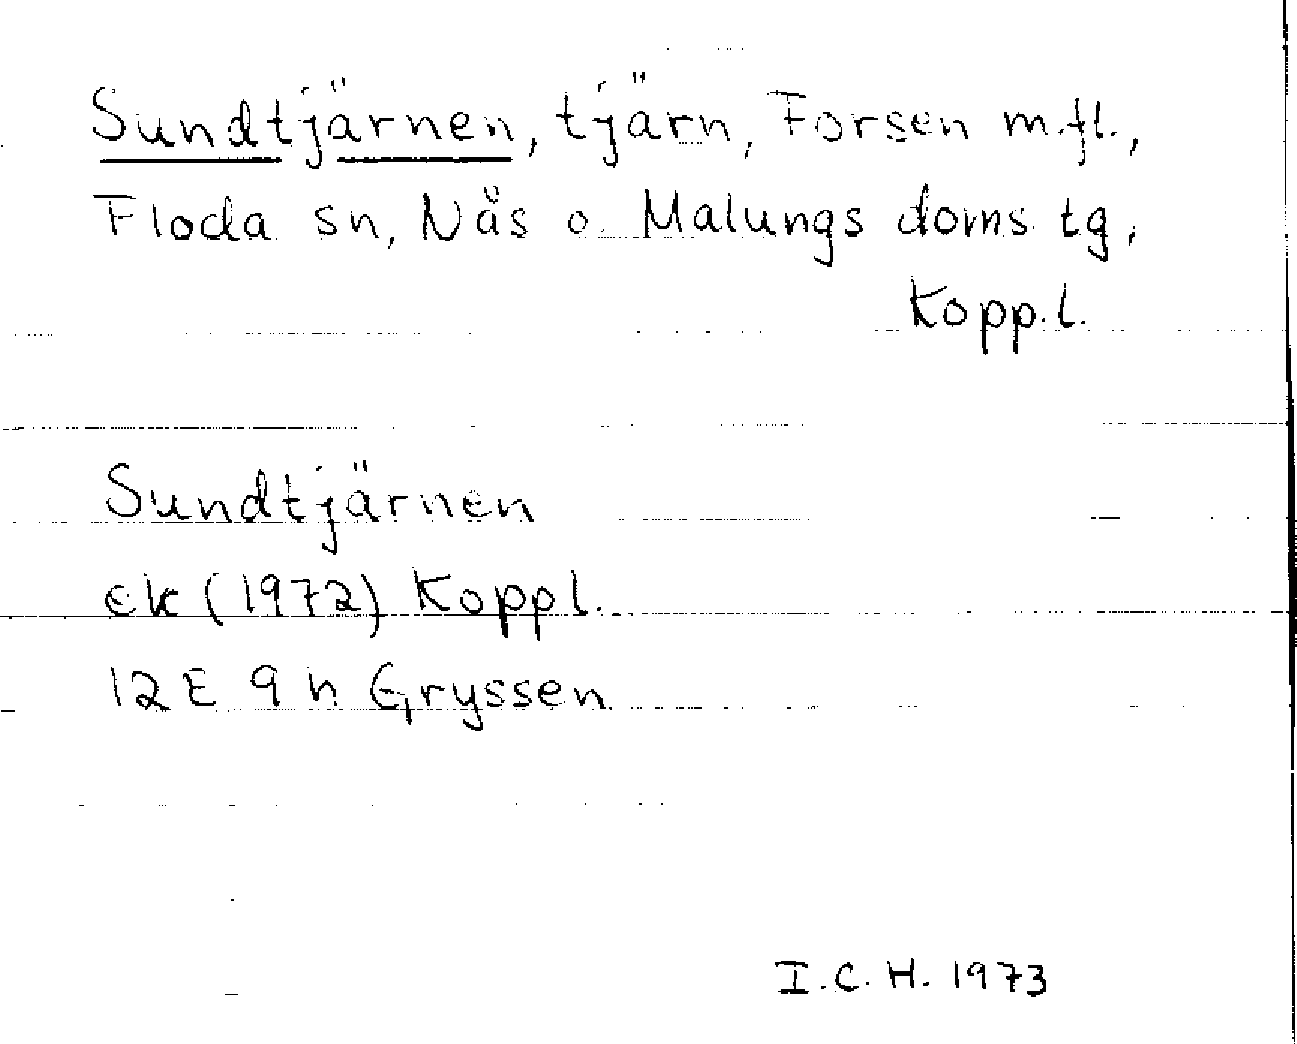 Sundtjärnen, tjärn, Forsen m.fl.,
Floda sn, Nås o. Malungs doms tg,
Kopp.l.
Sundtjärnen
ek (1972) Koppl.
12E 9h Gryssen
I.C.H. 1973